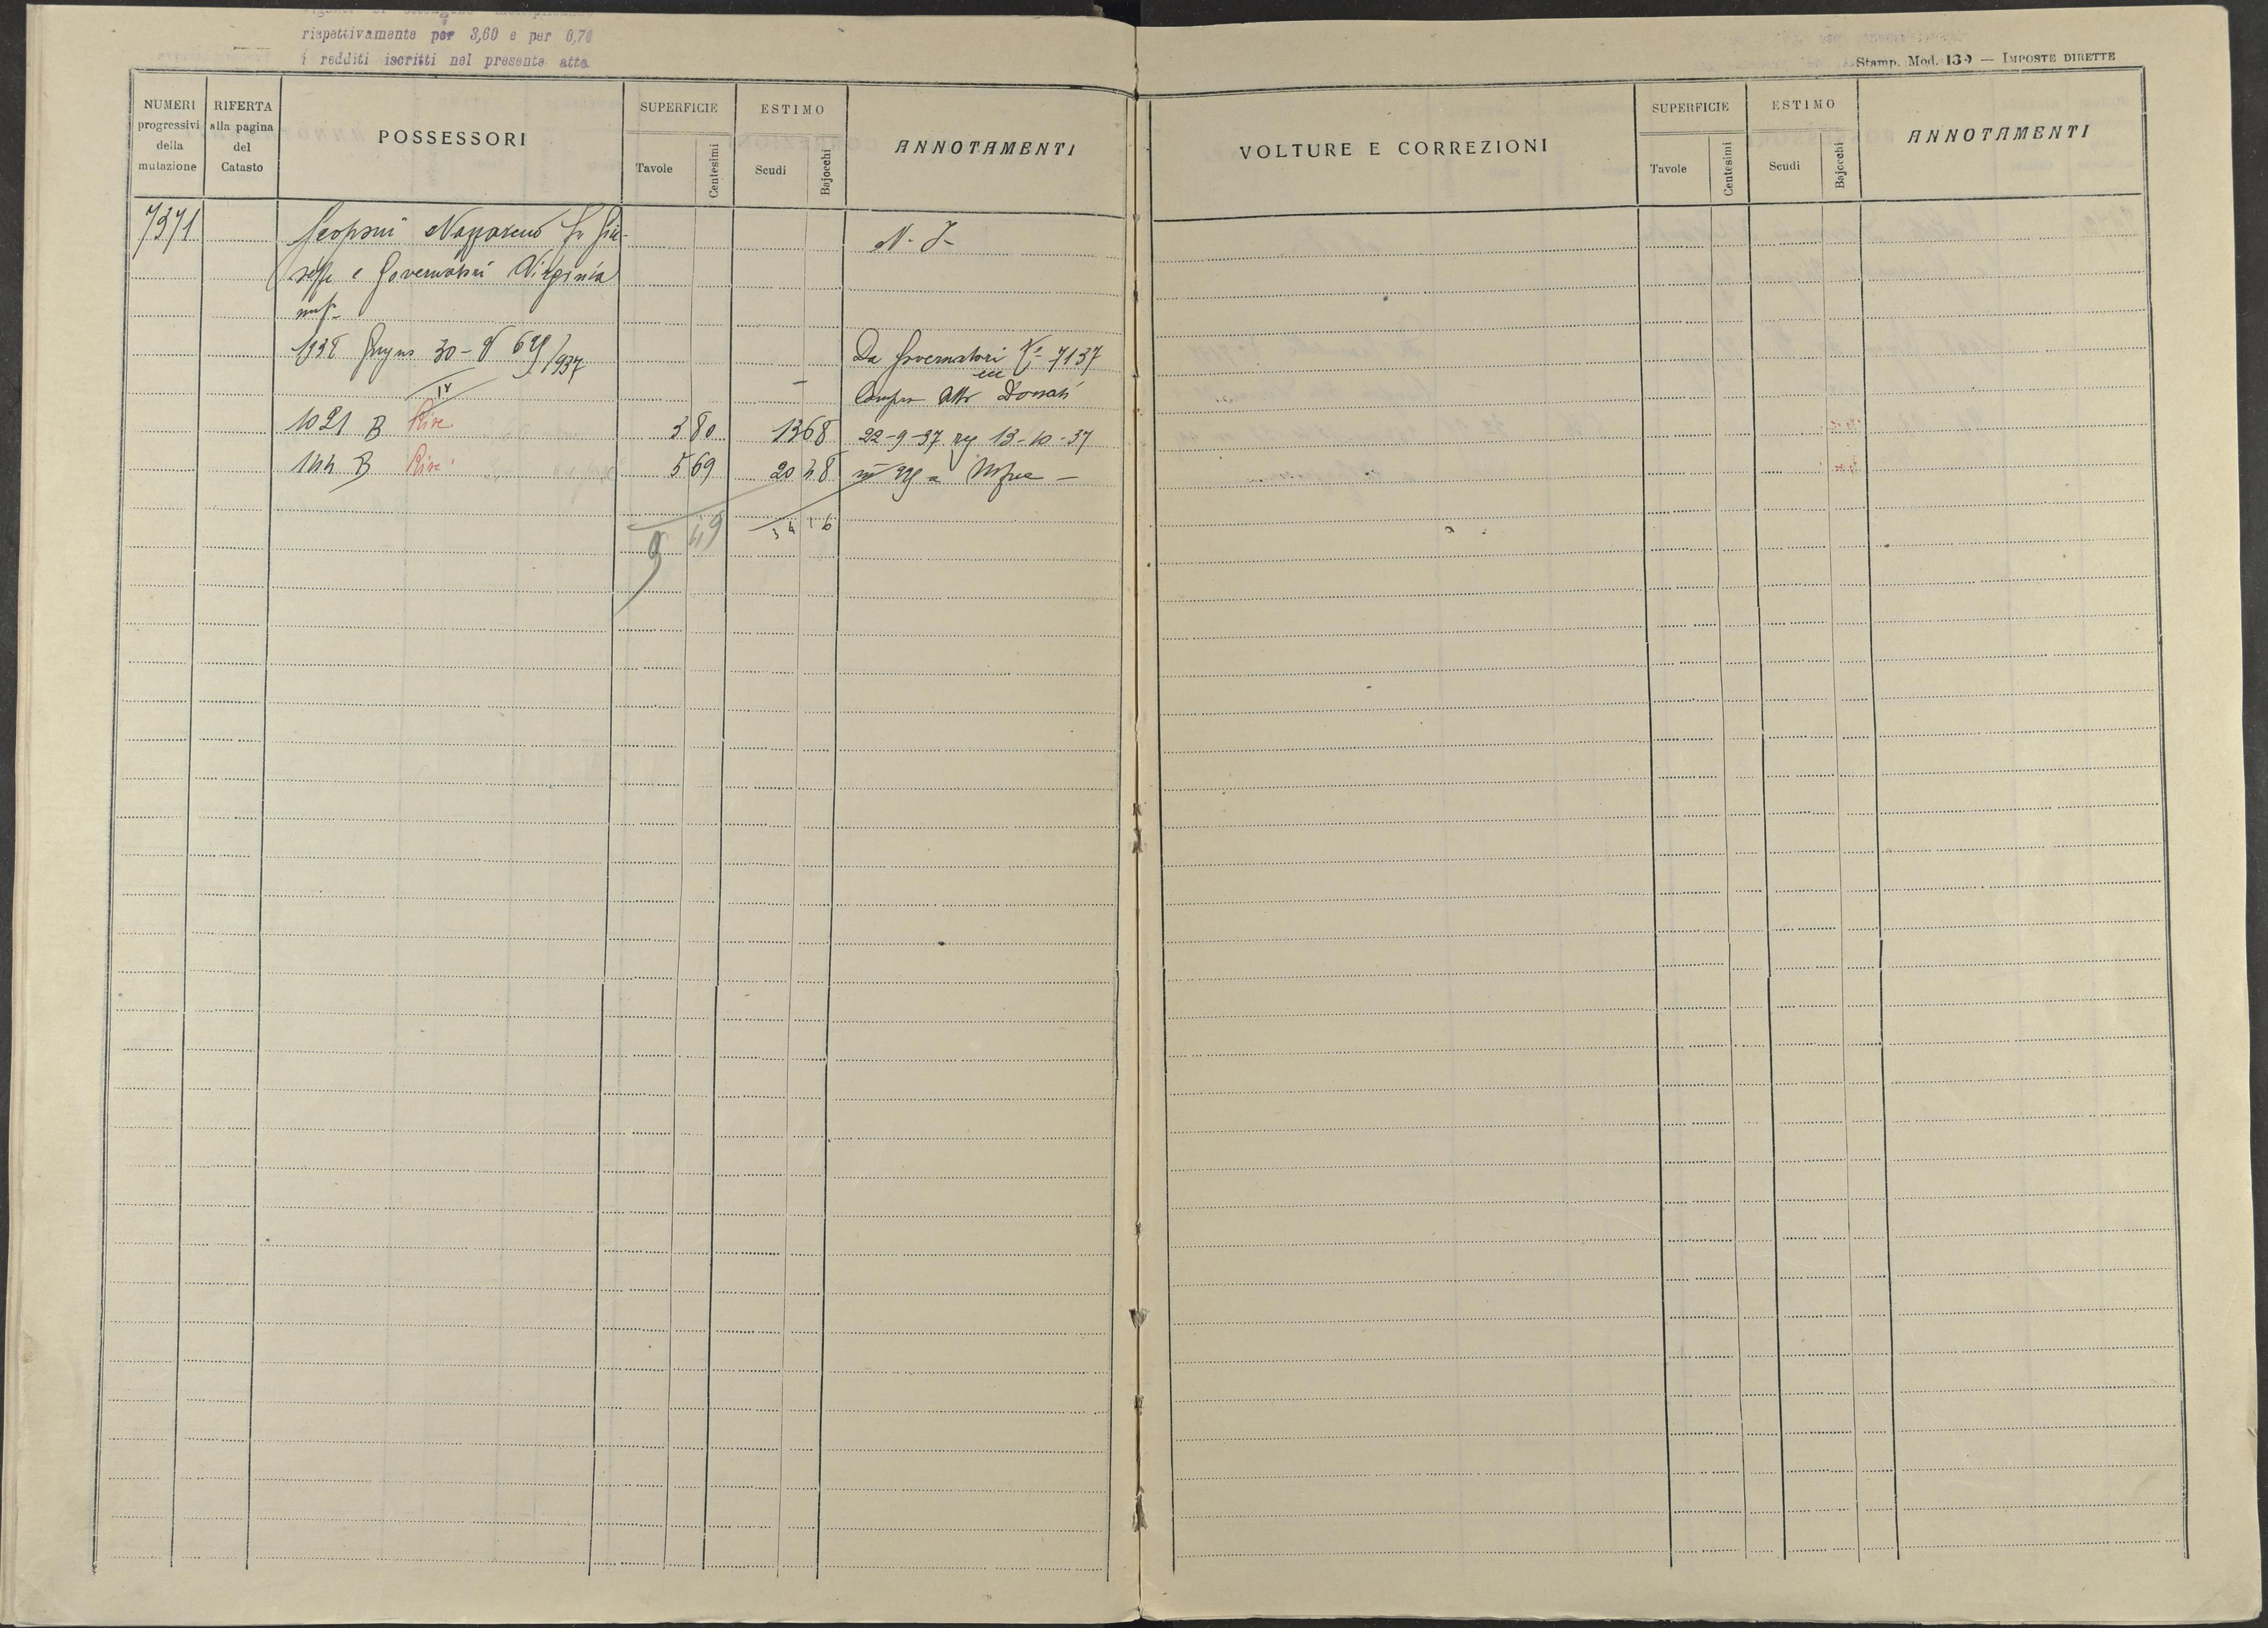 rispettivamente per 3,60 e per 6,70
i redditi iscritti nel presente atto
Stamp. Mod. 139 — IMPOSTE DIRETTE
NUMERI progressivi della mutazione
RIFERTA alla pagina del Catasto
POSSESSORI
SUPERFICIE
Tavole
Centesimi
ESTIMO
Scudi
Bajocchi
ANNOTAMENTI
VOLTURE E CORREZIONI
SUPERFICIE
Tavole
Centesimi
ESTIMO
Scudi
Bajocchi
ANNOTAMENTI
7371 Nazzareno fu Giu- N. I.
seppe e Governatori Virginia
1938 Giugno 30 - Da Governatori 7137
IV
Donati
1021 B Rive 3 80 13 68 22-9-37 reg 13-10-37
144 B Rive 5 69 20 48
9 49 34 16